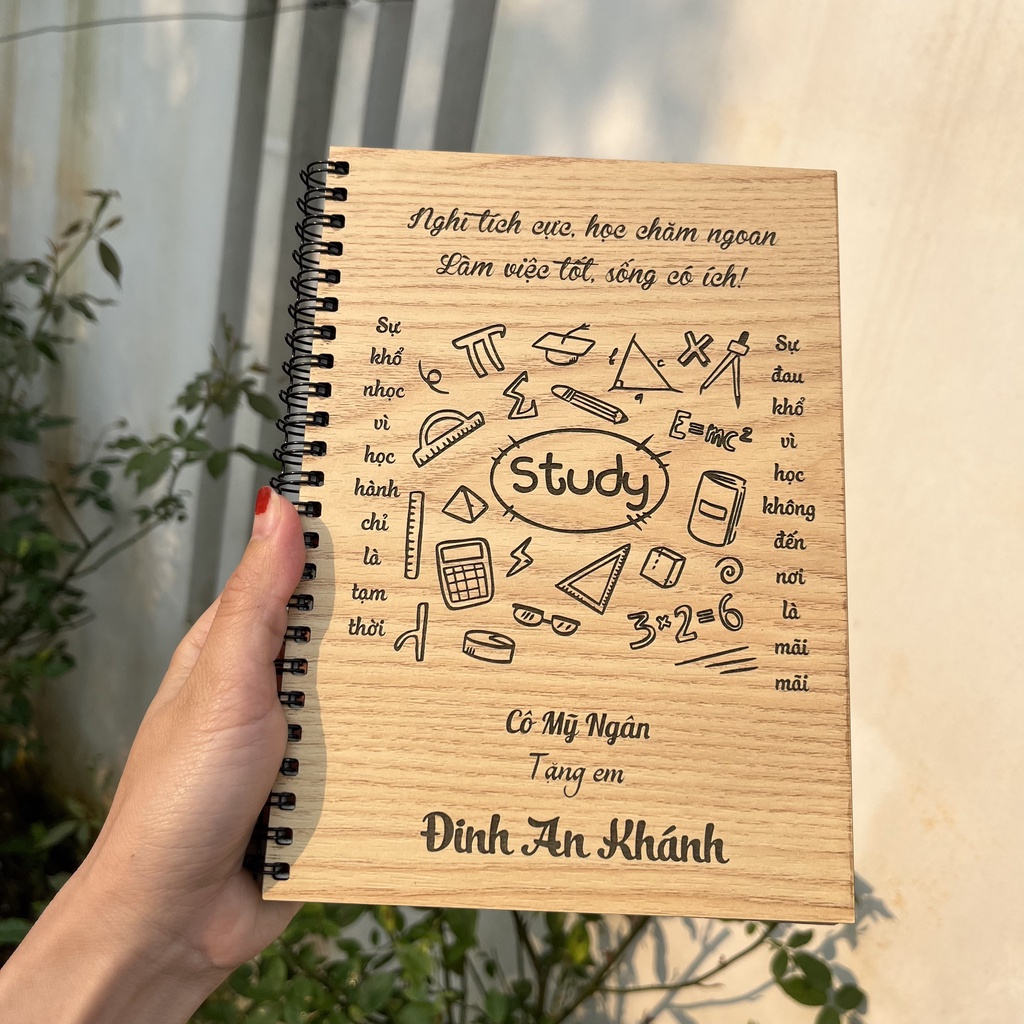 Nghĩ tích cực, học chăm ngoan
Làm việc tốt, sống có ích!
Sự
khổ
nhọc
vì
học
hành
chỉ
là
tạm
thời
π
Σ
b
c
a
E=mc²
Study
3×2=6
Sự
đau
khổ
vì
học
không
đến
nơi
là
mãi
mãi
Cô Mỹ Ngân
Tặng em
Đinh An Khánh